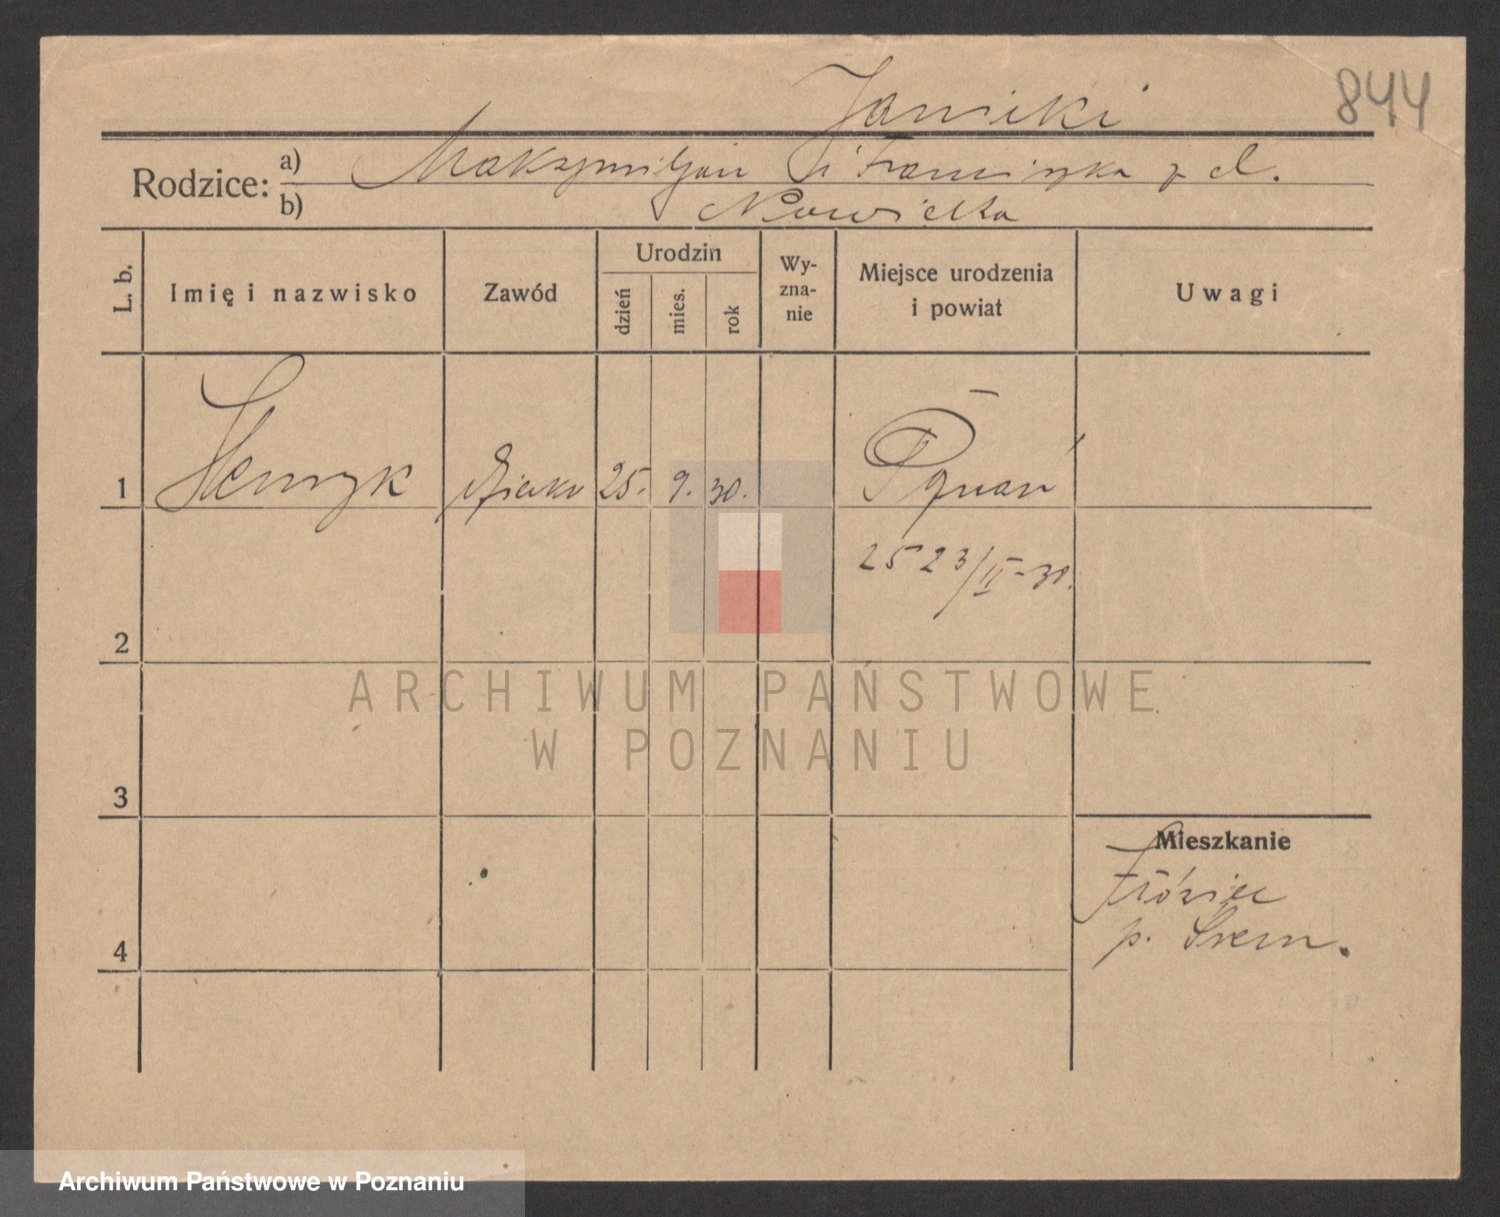 Janicki
844
Rodzice: a) Maksymiljan i Franciszka z d.
b) Nowicka
L. b.
Imię i nazwisko
Zawód
Urodzin
dzień
mies.
rok
Wy-
zna-
nie
Miejsce urodzenia
i powiat
Uwagi
1 Henryk 25. 9. 30. Poznań
2523/II-30.
2
3
Mieszkanie
p. Śrem.
4
ARCHIWUM PAŃSTWOWE
W POZNANIU
Archiwum Państwowe w Poznaniu